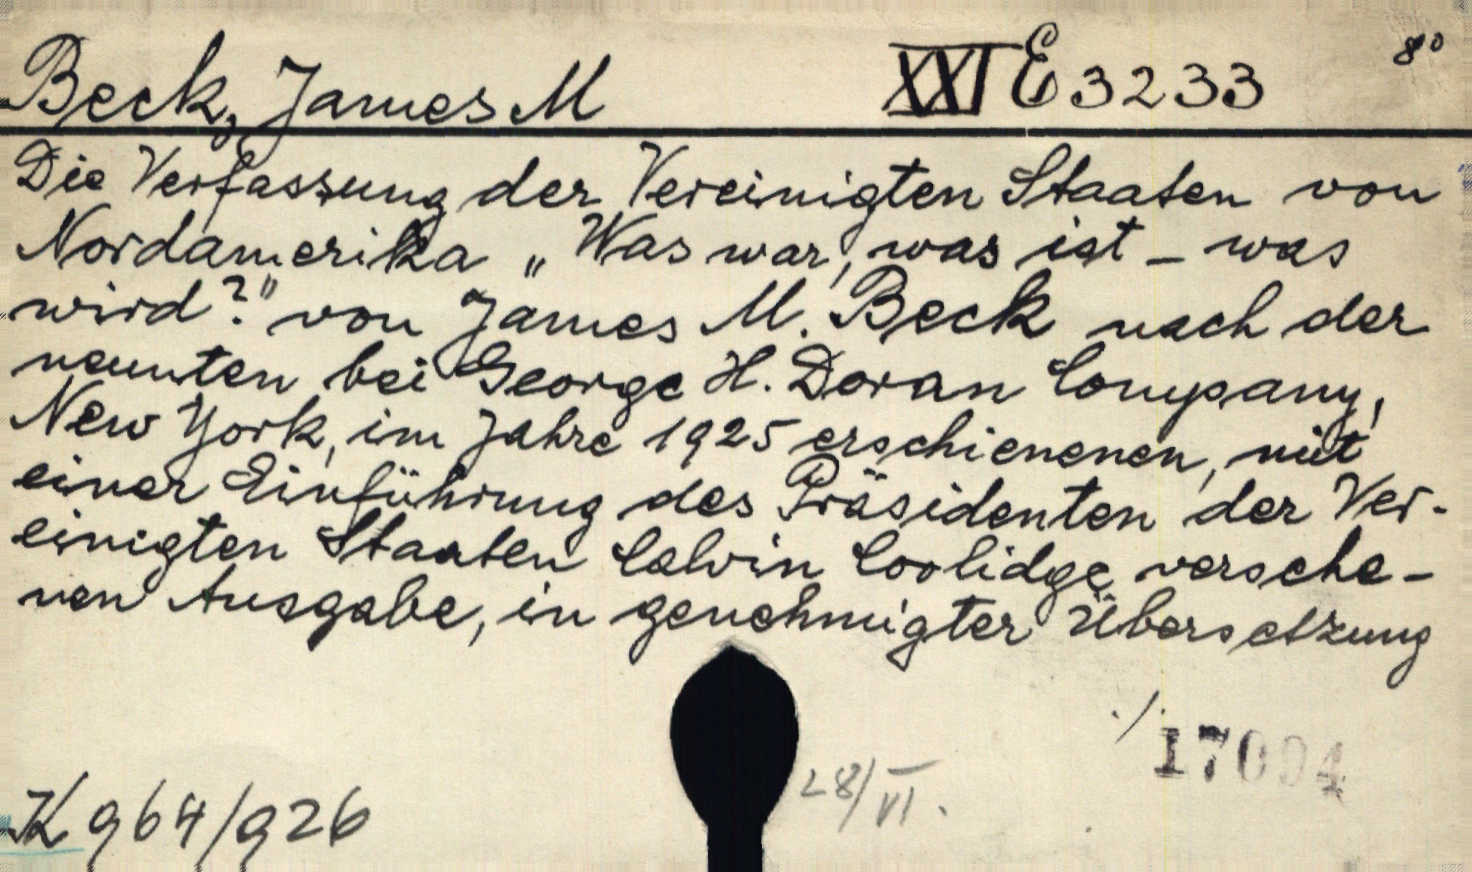 Beck, James M
XXI E 3233
8°
Die Verfassung der Vereinigten Staaten von
Nordamerika „Was war, was ist – was
wird?" von James M. Beck nach der
neunten bei George H. Doran Company,
New York, im Jahre 1925 erschienenen, mit
einer Einführung des Präsidenten der Ver-
einigten Staaten Calvin Coolidge versehe-
nen Ausgabe, in genehmigter Übersetzung
./.
17094
28/VI.
K 964/926